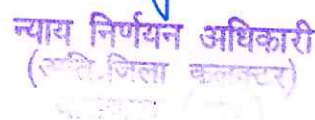 न्याय निर्णयन अधिकारी
(अति.जिला कलक्टर)